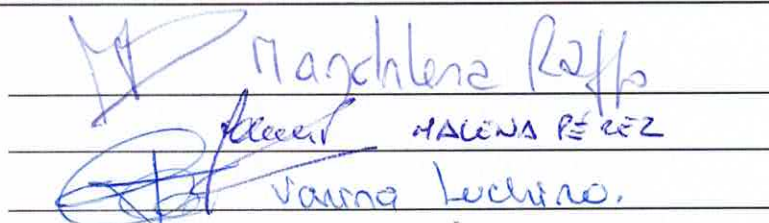 Magdalena Raffo
MALENA PEREZ
Vanina Luchino.